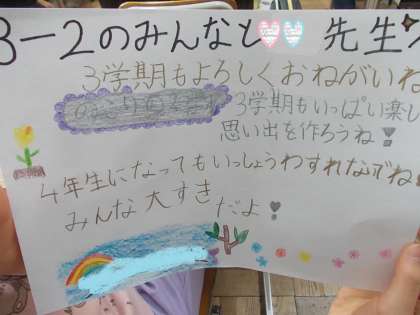 3-2のみんなと 先生
3学期もよろしくおねがいね
3学期もいっぱい楽し
思い出を作ろうね!
4年生になってもいっしょうわすれないでね
みんな大すきだよ!